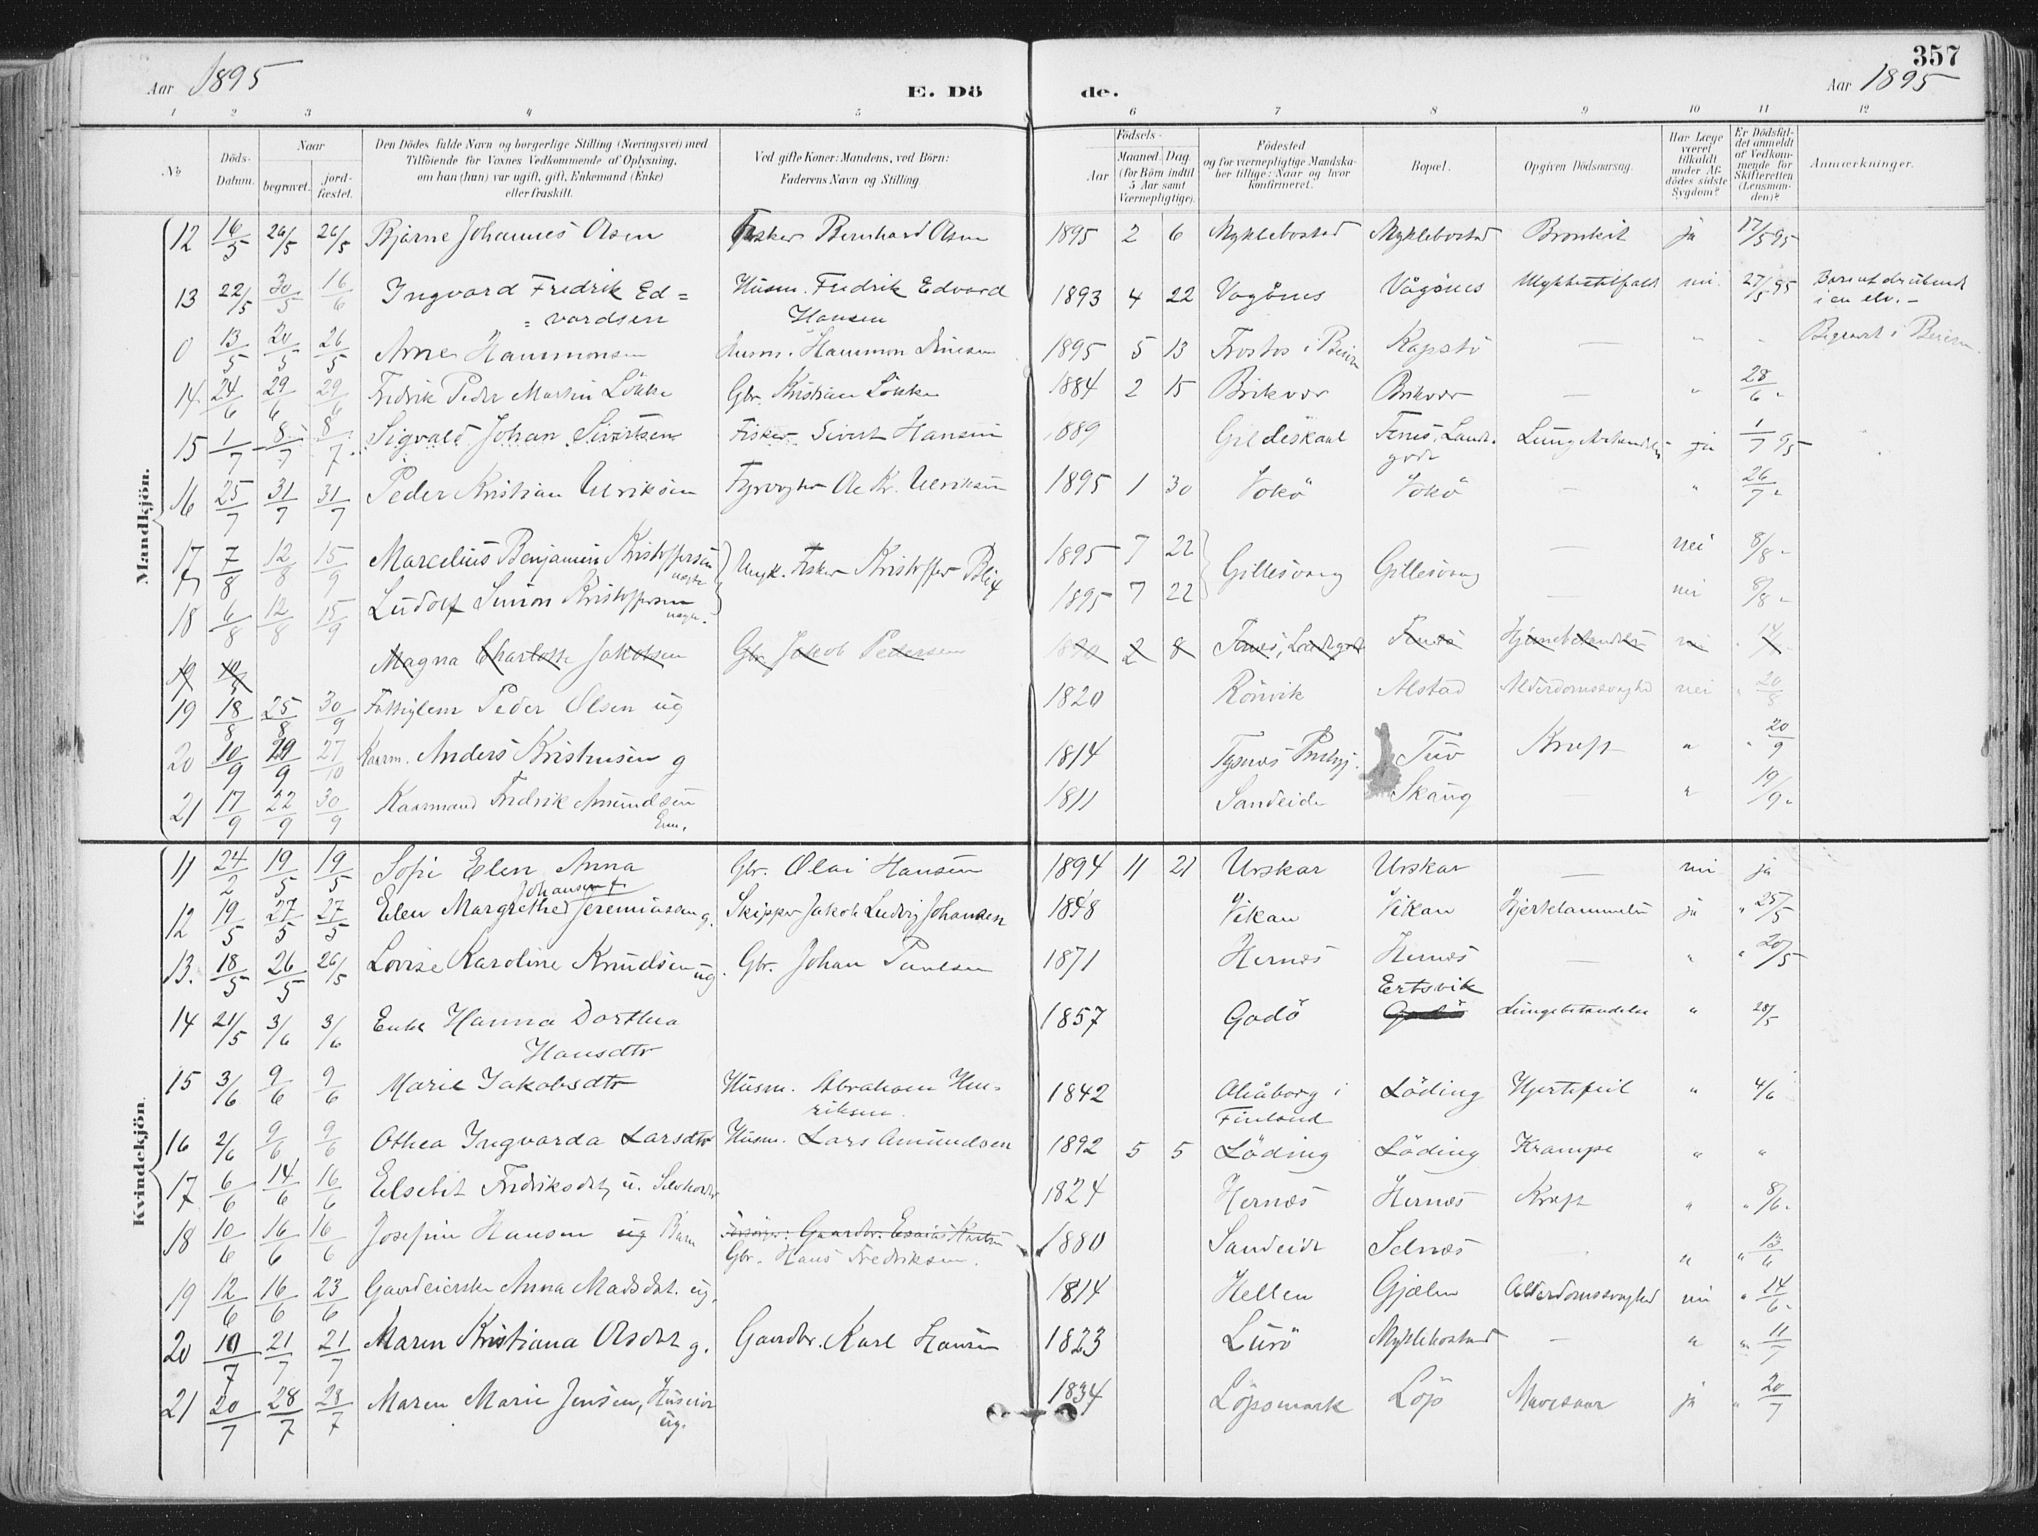 357
Aar 1895 E. Dö de. Aar 1895
1 2 3 4 5 6 7 8 9 10 11 12
No Döds-Datum. Naar begravet. jordfæstet. Den Dödes fulde Navn og borgerlige Stilling (Næringsvei) med Tilföiende for Voxnes Vedkommende af Oplysning, om han (hun) var ugift, gift, Enkemand (Enke) eller fraskilt. Ved gifte Koner: Mandens, ved Börn: Faderens Navn og Stilling. Födsels- Aar Maaned Dag (for Börn indtil 5 Aar samt Værnepligtige). Födested og for værnepligtige Mandskaber tillige: Naar og hvor konfirmeret. Bopæl. Opgiven Dödsaarsag. Har Læge været tilkaldt under Afdödes sidste Sygdom? Er Dödsfaldet anmeldt af Vedkommende for Skifteretten (Lensmanden)? Anmærkninger.
Mandkjön.
12 16/5 26/5 26/5 Bjarne Johannes Olsen Fisker Bernhard Olsen 1895 2 6 Myklebostad Myklebostad Bronkit ja 17/5 95
13 22/5 30/5 16/6 Ingvard Fredrik Ed= Husm. Fredrik Edvard 1893 4 22 Vagönes Vågönes nei 27/5 95
= vardsen Hansen i en elv. -
0 13/5 20/5 26/5 Arne Hammonsen Husm. Hammon 1895 5 13 i Beiern Kapstö — " " Begravet i Beiern
14 24/6 29/6 29/6 Fredrik Peder Martin Lökke Gbr. Kristian Lökke 1884 2 15 Brikvær Brikvær — " 28/6 "
15 1/7 8/7 8/7 Sigvald Johan Sivertsen Fisker Sivert Hansen 1889 Gildeskaal Fenes, Landegode ja 1/7 95
16 25/7 31/7 31/7 Peder Kristian Ulriksen Fyrvogter Ole Kr. Ulriksen 1895 1 30 Vokö Vokö — " 26/7 "
17 7/8 12/8 15/9 Marcelius Benjamin Kristoffersen uægte Ungk. Fisker Kristoffer Blix 1895 7 22 Gillesvaag Gillesvaag — nei 8/8 "
18 6/8 12/8 15/9 Ludolf Simon Kristoffersen uægte 1895 7 22 — nei 8/8 "
19 Magna Charlotte Jakobsen Gbr. Jakob Pedersen 1890 2 8 Fenes, Landegode Fenes Hjernebetændelse nei
19 18/8 25/8 30/9 Fattiglem Peder Olsen ug 1820 Rönvik Alstad Alderdomssvaghed nei " 20/8
20 10/9 29/9 27/10 Kaarm. Anders Kristensen g 1814 Tysnes Tuv Kræft " " 20/9
21 17/9 22/9 30/9 Kaarmand Fredrik Amundsen Enm. 1811 Sandeide Skaug — " 19/9 "
Kvindekjön.
11 24/2 19/5 19/5 Sofie Elen Anna Gbr. Olai Hansen 1894 11 21 Urskar Urskar — nei ja
Johansen f.
12 19/5 27/5 27/5 Elen Margrethe Jeremiassen g. Skipper Jakob Ludvig Johansen 1848 Vikan Vikan ja " 25/5
13. 18/5 26/5 26/5 Lovise Karoline Knudsen ug. Gbr. Johan Paulsen 1871 Hernes Hernes — " " 20/5
Ertsvik
14 21/5 3/6 3/6 Enke Hanna Dorthea 1857 Godö Godö Lungebetændelse " 28/5
Hansdtr
15 3/6 9/6 9/6 Marie Jakobsdtr Husm. Abraham Hen- 1842 i Löding Hjertefeil " 4/6
riksen. Finland
16 2/6 9/6 9/6 Othea Ingvarda Larsdtr Husm. Lars Amundsen 1892 5 5 Löding Löding Krampe " "
17 6/6 14/6 16/6 Elsebet Fredriksdt, u. 1824 Hernes Hernes Kræft " " 8/6 "
18 10/6 16/6 16/6 Josefine Hansen ug Barn Forsörger: Gaardbr. Esaias 1880 Sandeide Selnes " " 13/6
Gbr. Hans Fredriksen.
19 12/6 16/6 23/6 Anna Madsdat. ug. 1814 Hellen Gjælen Alderdomssvaghed nei " 14/6 "
20 10/7 21/7 21/7 Maren Kristiana Olsdat g. Gaardbr. Karl Hansen 1823 Lurö Myklebostad — " " 11/7
21 20/7 28/7 28/7 Maren Marie Jensen, ug. 1834 Löpsmark Löp Mavesaar ja " 20/7